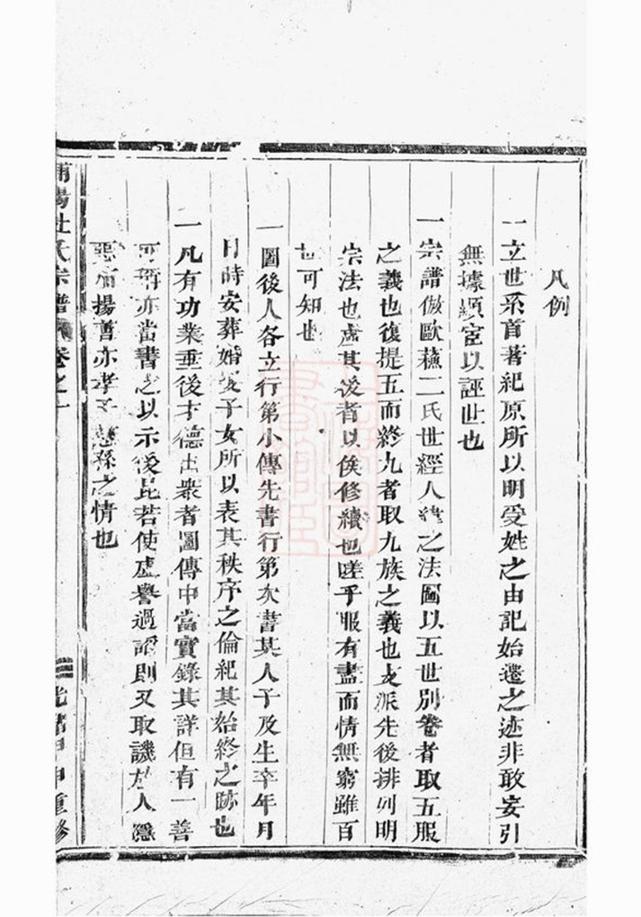 凡例
一立世系首著紀原所以明受姓之由記始遷之迹非敢妄引
無據顯宦以誣世也
一宗譜倣歐蘇二氏世經人緯之法圖以五世別卷者取五服
之義也復提五而終九者取九族之義也支派先後排列明
宗法也虛其後者以俟修續也嗟乎服有盡而情無窮雖百
世可知也
一圖後人各立行第小傳先書行第次書某人子及生卒年月
日時安葬婚娶子女所以表其秩序之倫紀其始終之跡也
一凡有功業垂後才德出衆者圖傳中當實錄其詳但有一善
可稱亦當書之以示後昆若使虛譽過諂則又取譏於人隱
惡揚善亦孝子慈孫之情也
浦陽杜氏宗譜 卷之一
光緒甲申重修